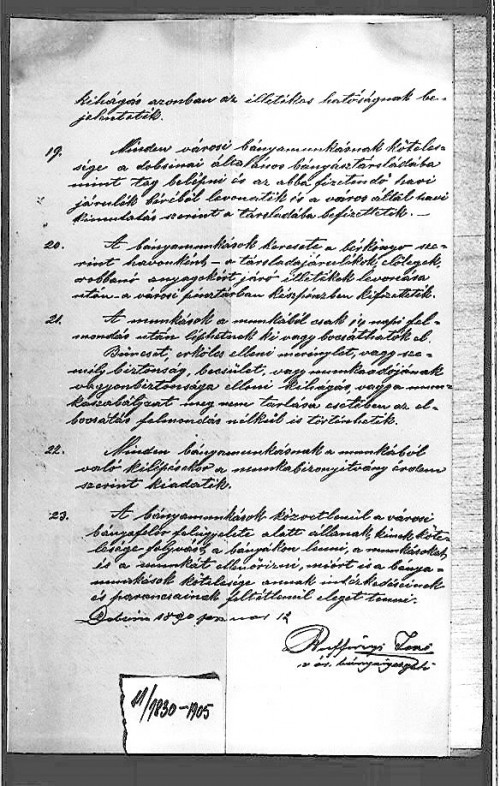 kihágás azonban az illetékes hatóságnak be-
jelentetik.
19. Minden városi bányamunkásnak köteles-
sége a dobsinai általános bányásztársládába
mint tag belépni és az abba fizetendő havi
járulék béréből levonatik és a város által havi
kimutatás szerint a társládába befizettetik. —
20. A bányamunkások keresete a bérkönyv sze-
rint havonként – a társládajárulékok, előlegek,
robbanó anyagokért járó illetékek levonása
után – a városi pénztárban készpénzben kifizettetik.
21. A munkások a munkából csak 14 napi fel-
mondás után léphetnek ki vagy bocsáthatók el.
Bűneset, erkölcs elleni merénylet, vagy sze-
mély biztonság, becsület, vagy munkaadójának
vagyonbiztonsága elleni kihágás, vagy a mun-
kaszabályzat meg nem tartása esetében az el-
bocsátás felmondás nélkül is történhetik.
22. Minden bányamunkásnak a munkából
való kilépésekor a munkabizonyitvány érdem
szerint kiadatik.
23. A bányamunkások közvetlenül a városi
bányafelőr felügyelete alatt állanak, kinek köte-
lessége folyvást a bányákon lenni, a munkásokat
és a munkát ellenőrizni, miért is a bánya-
munkások kötelesége annak intézkedéseinek
és parancsainak feltétlenül eleget tenni.
Dobsina 1890 12
Ruffinyi Jenő
bányaigazgató
11/1830-1905